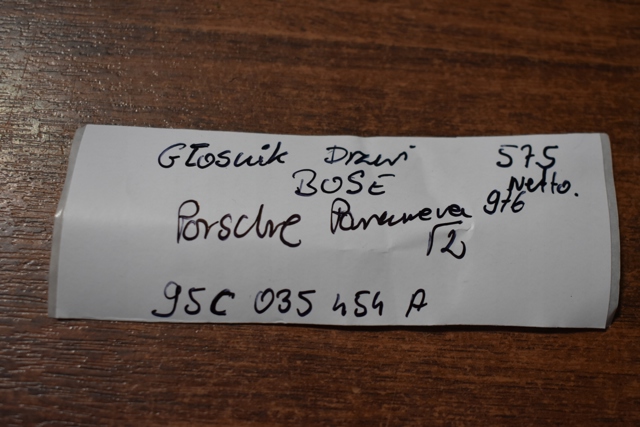 Głosnik Drzwi 575
BOSE Netto.
Porsche Panamera 976
95C 035 454 A